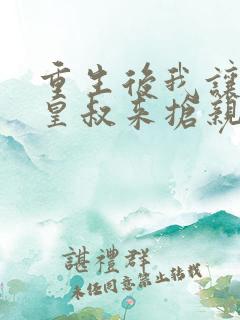 重生後我讓
皇叔來搶親
諶禮群
未经同意禁止转载